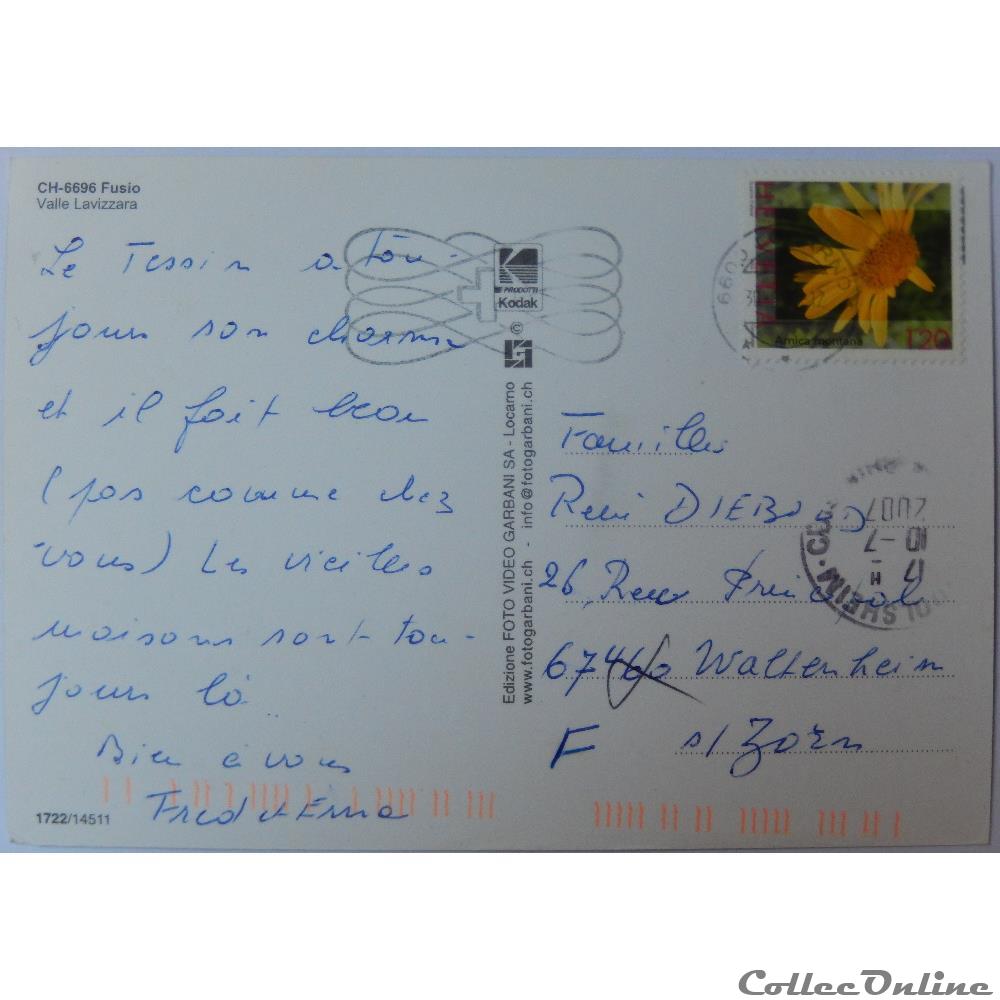 CH-6696 Fusio
Valle Lavizzara
Le Tessin a tou-
jours son charme
et il fait beau
(pas comme chez
vous) Les vieilles
maisons sont tou-
jours là
Bien à vous
Fred et Erna
1722/14511
K
PRODOTTI
Kodak
©
Edizione FOTO VIDEO GARBANI SA - Locarno
www.fotogarbani.ch - info@fotogarbani.ch
HELVETIA
Arnica montana
120
6600
2007
10-7
17 H
Familles
René DIEBOLD
26, Rue Principal
67460 Waltenheim
F s/Zorn
CollecOnline